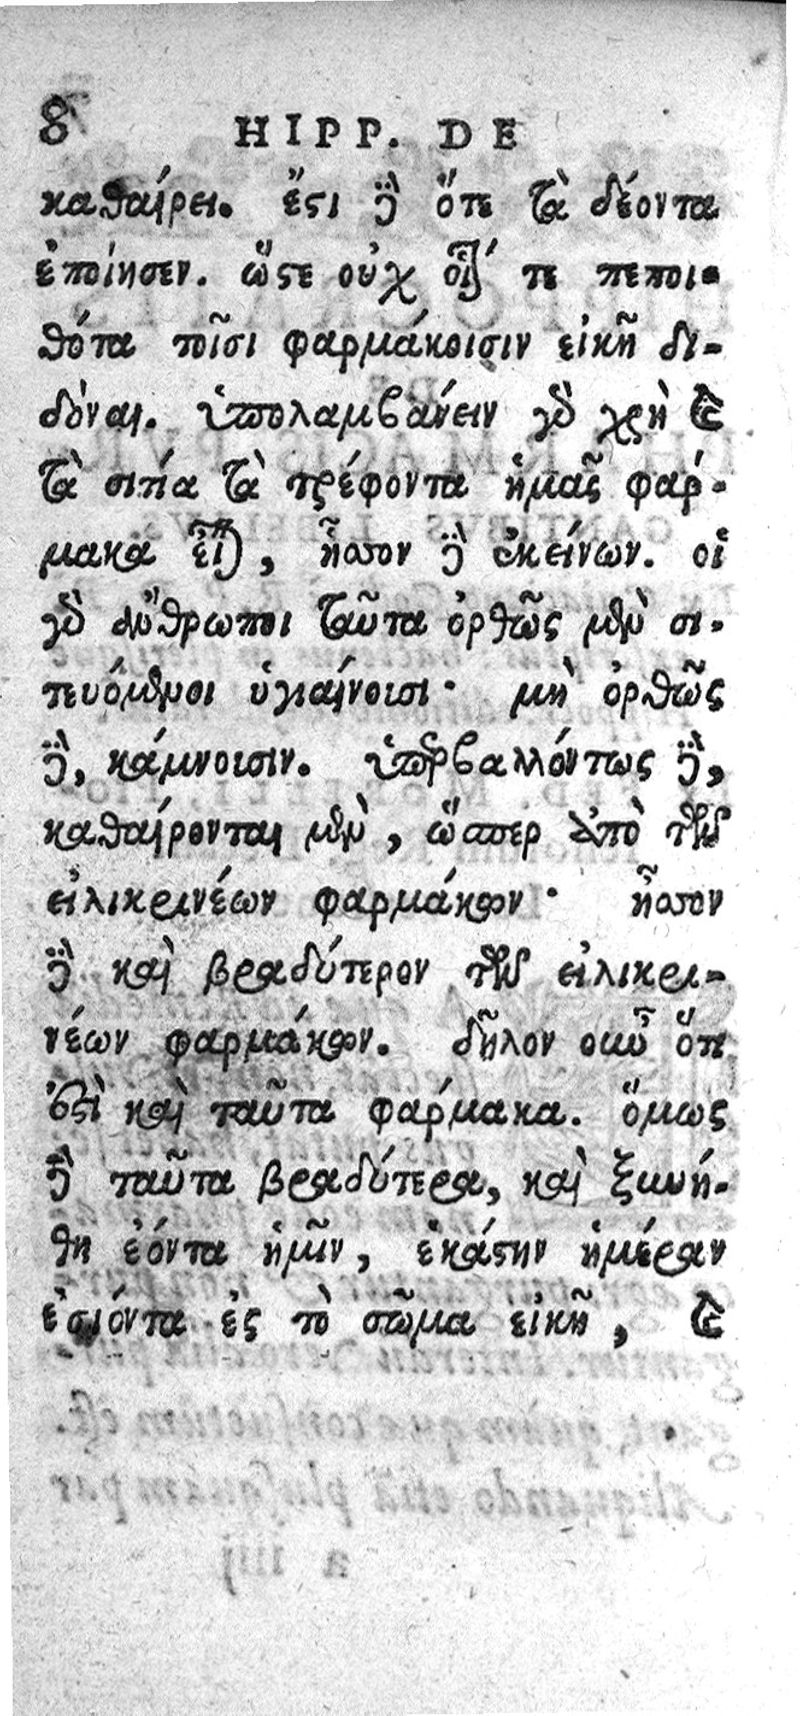 8 HIPP. DE
καθαίρει. ἔστι δὲ ὅτε τὰ δέοντα
ἐποίησεν. ὥστε οὐχ οἷόν τε πεποι-
θότα τοῖσι φαρμάκοισιν εἰκῆ δι-
δόναι. ὑπολαμβάνειν γὰρ χρὴ καὶ
τὰ σιτία τὰ τρέφοντα ἡμᾶς φάρ-
μακα εἶναι, ἧσσον δὲ ἐκείνων. οἱ
γὰρ ἄνθρωποι ταῦτα ὀρθῶς μὲν σι-
τευόμενοι ὑγιαίνοισι· μὴ ὀρθῶς
δὲ, κάμνοισιν. ὑπερβαλλόντως δὲ,
καθαίρονται μὲν, ὥσπερ ἀπὸ τῶν
εἰλικρινέων φαρμάκων· ἧσσον
δὲ καὶ βραδύτερον τῶν εἰλικρι-
νέων φαρμάκων. δῆλον οὖν ὅτι
ἐστὶ καὶ ταῦτα φάρμακα. ὅμως
δὲ ταῦτα βραδύτερα, καὶ ξυνή-
θη ἐόντα ἡμῖν, ἑκάστην ἡμέραν
ἐσιόντα ἐς τὸ σῶμα εἰκῆ, καὶ